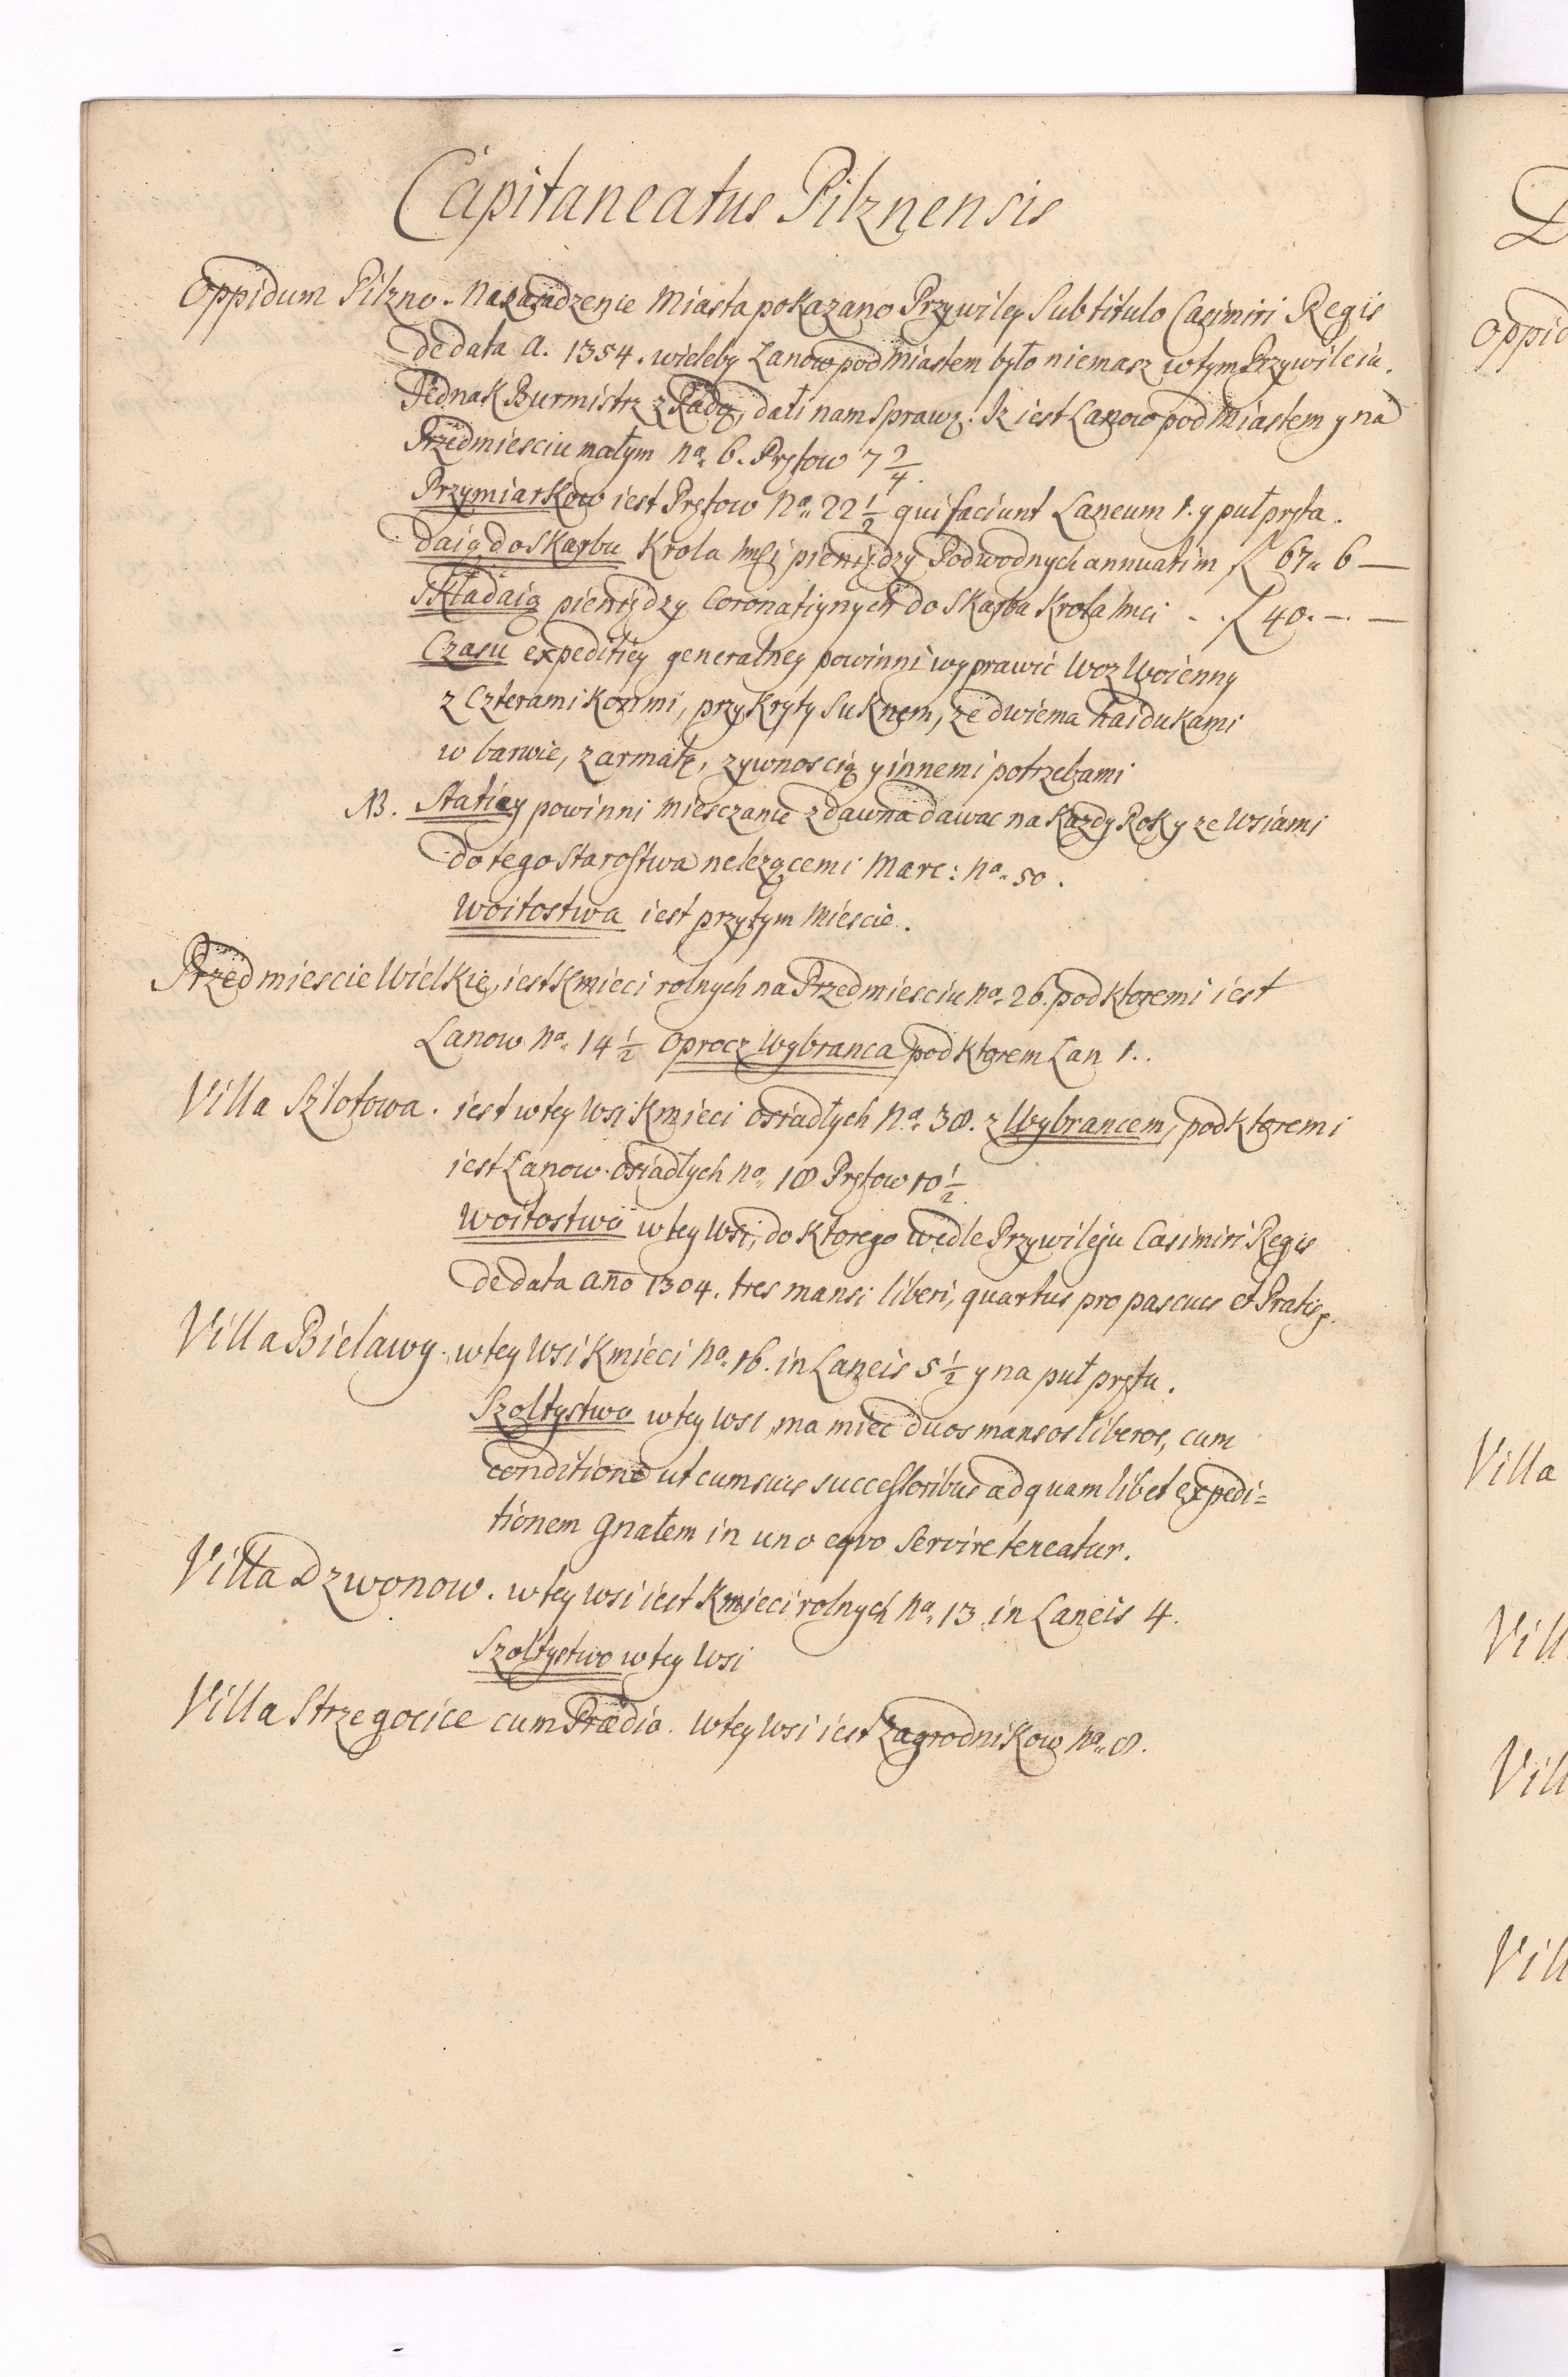 Capitaneatus Pilznensis
Oppidum Pilzno. Na zasadzenie Miasta pokazano Przywiley Sub titulo Casimiri Regis
de data A. 1354. wieleby Lanow pod Miastem było niemasz w tym Przywileiu.
Jednak Burmistrz z Radą, dali nam Sprawę. Iz iest Lanow pod Miastem y na
Przedmiesciu małym No. 6. Prętow 7 2/4.
Przymiarkow iest Prętow No. 22 1/2 qui faciunt Laneum 1. y puł pręta.
daią do Skarbu Krola JMci pieniędzy Podwodnych annuatim f 67 „ 6 —
Składaią pieniędzy Coronatiynych do Skarbu Krola Jmci - . f 40. — . —
Czasu expeditiey generalney powinni wyprawić Woz Woienny
z Czterami Konmi, przykryty Suknem, ze dwiema haidukami
w barwie, z armatą, zywnoscią y innemi potrzebami
NB. Statiey powinni Miesczanie z dawna dawac na Kazdy Rok y ze Wsiami
do tego Starostwa nelezącemi Marc: No. 50.
Woitostwa iest przy tym Miescie.
Przedmiescie Wielkie, iest Kmieci rolnych na Przedmiesciu No. 26. pod ktoremi iest
Lanow No. 14 1/2 oprocz Wybranca pod Ktorem Lan 1..
Villa Szlotowa. iest w tey Wsi Kmieci osiadłych No. 38. z Wybrancem, pod Ktoremi
iest Lanow osiadłych No. 18 Prętow 10 1/2
Woitostwo w tey Wsi, do Ktorego wedle Przywileju Casimiri Regis
de data Año 1304. tres mansi liberi, quartus pro pascuis et Pratis.
Villa Bielawy. w tey Wsi Kmieci No. 16. in Laneis 5 1/2 y na puł prętu.
Szołtystwo w tey Wsi, ma miec duos mansos liberos, cum
conditione ut cum suis successoribus ad quam libet expedi=
tionem Gnalem in uno eqvo Servire teneatur.
Villa Dzwonow. w tey wsi iest Kmieci rolnych No. 13 in Laneis 4.
Szołtystwo w tey Wsi
Villa Strzegocice cum Prædio. W tey Wsi iest Zagrodnikow No. 8.
Oppid
Villa
Vill
Vill
Vill